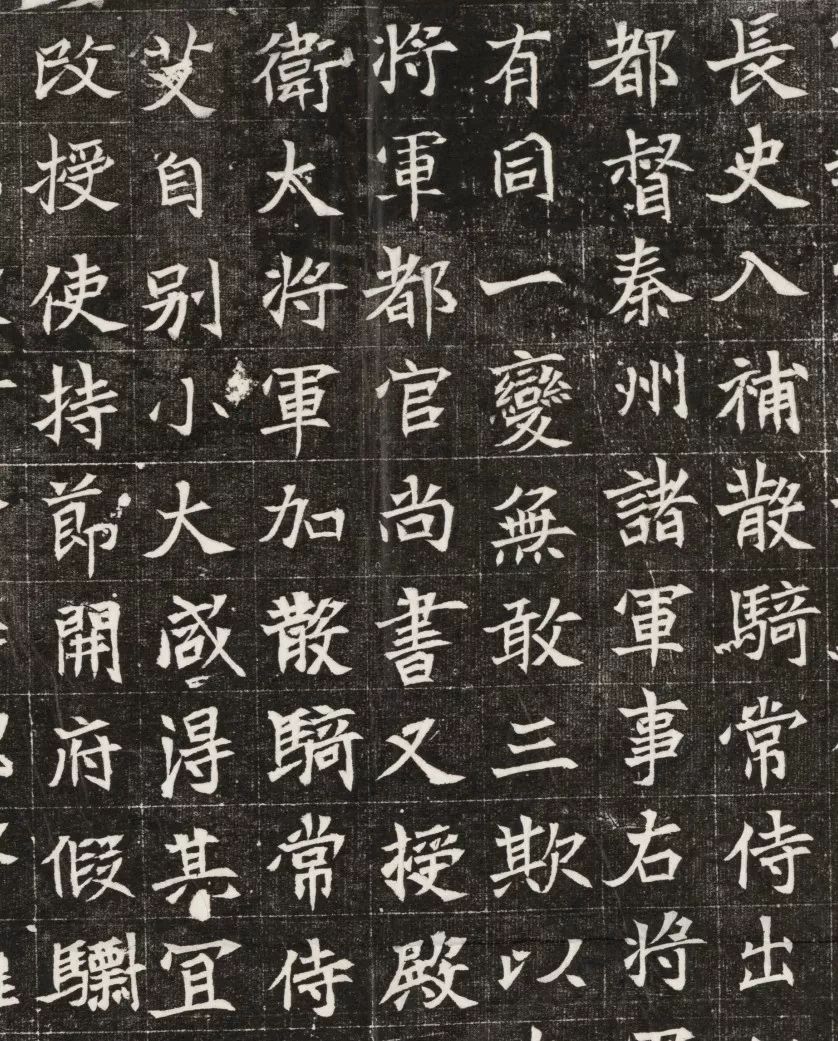 長史入補散騎常侍出
都督秦州諸軍事右將
有同一變無敢三欺以
將軍都官尚書又授殿
衛大將軍加散騎常侍
艾自別小大咸得其冝
改授使持節開府假驃